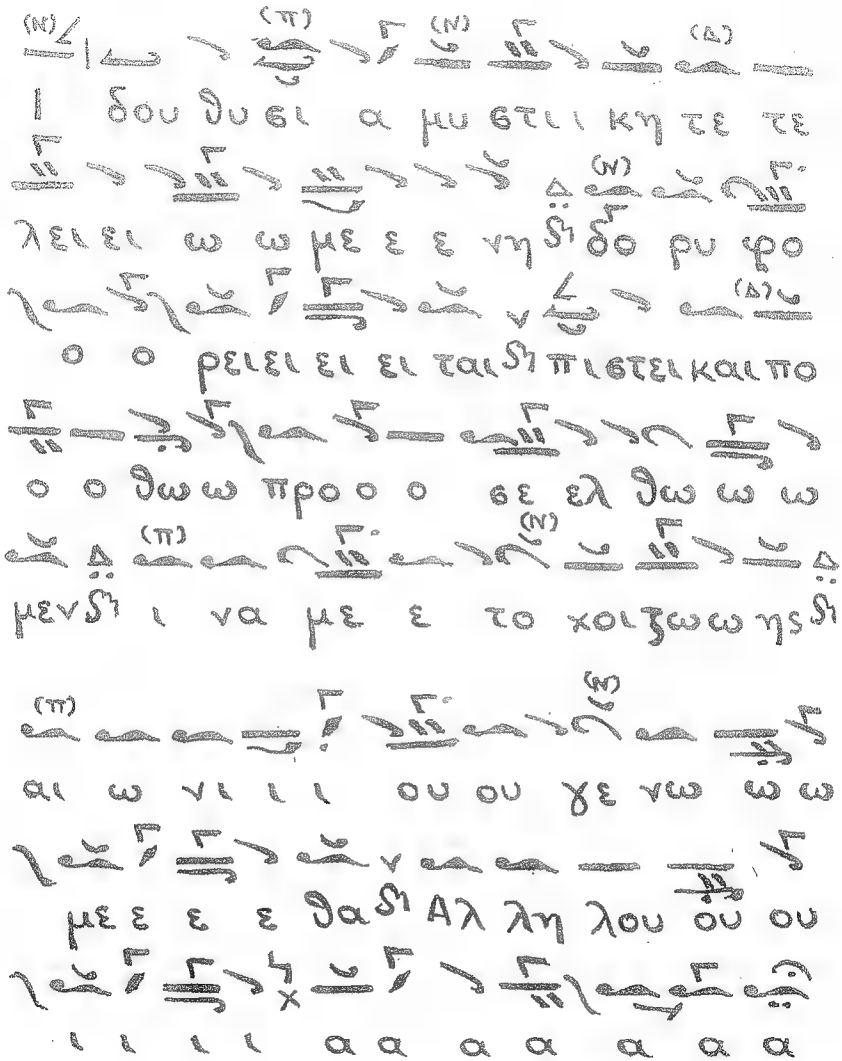 (Ν) (π) (Ν) (Δ)
Ι δου θυ σι α μυ στι ι κη τε τε
(Ν)
λει ει ω ω με ε ε νη δο ρυ φο
(Δ)
ο ο ρει ει ει ει ται πι στει και πο
ο ο θω ω προ ο ο σε ελ θω ω ω
(π) (Ν)
μεν ι να με ε το χοι ζω ω ης
(π) (Ν)
αι ω νι ι ι ου ου γε νω ω ω
με ε ε ε θα Αλ λη λου ου ου
ι ι ι ι α α α α α α α